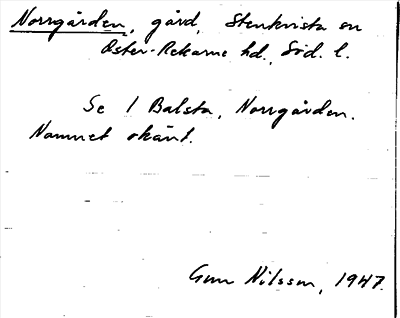 Norrgården, gård, Stenkvista sn
Öster-Rekarne hd., Söd. l.
Se 1 Balsta, Norrgården.
Namnet okänt.
Gun Nilsson, 1947.